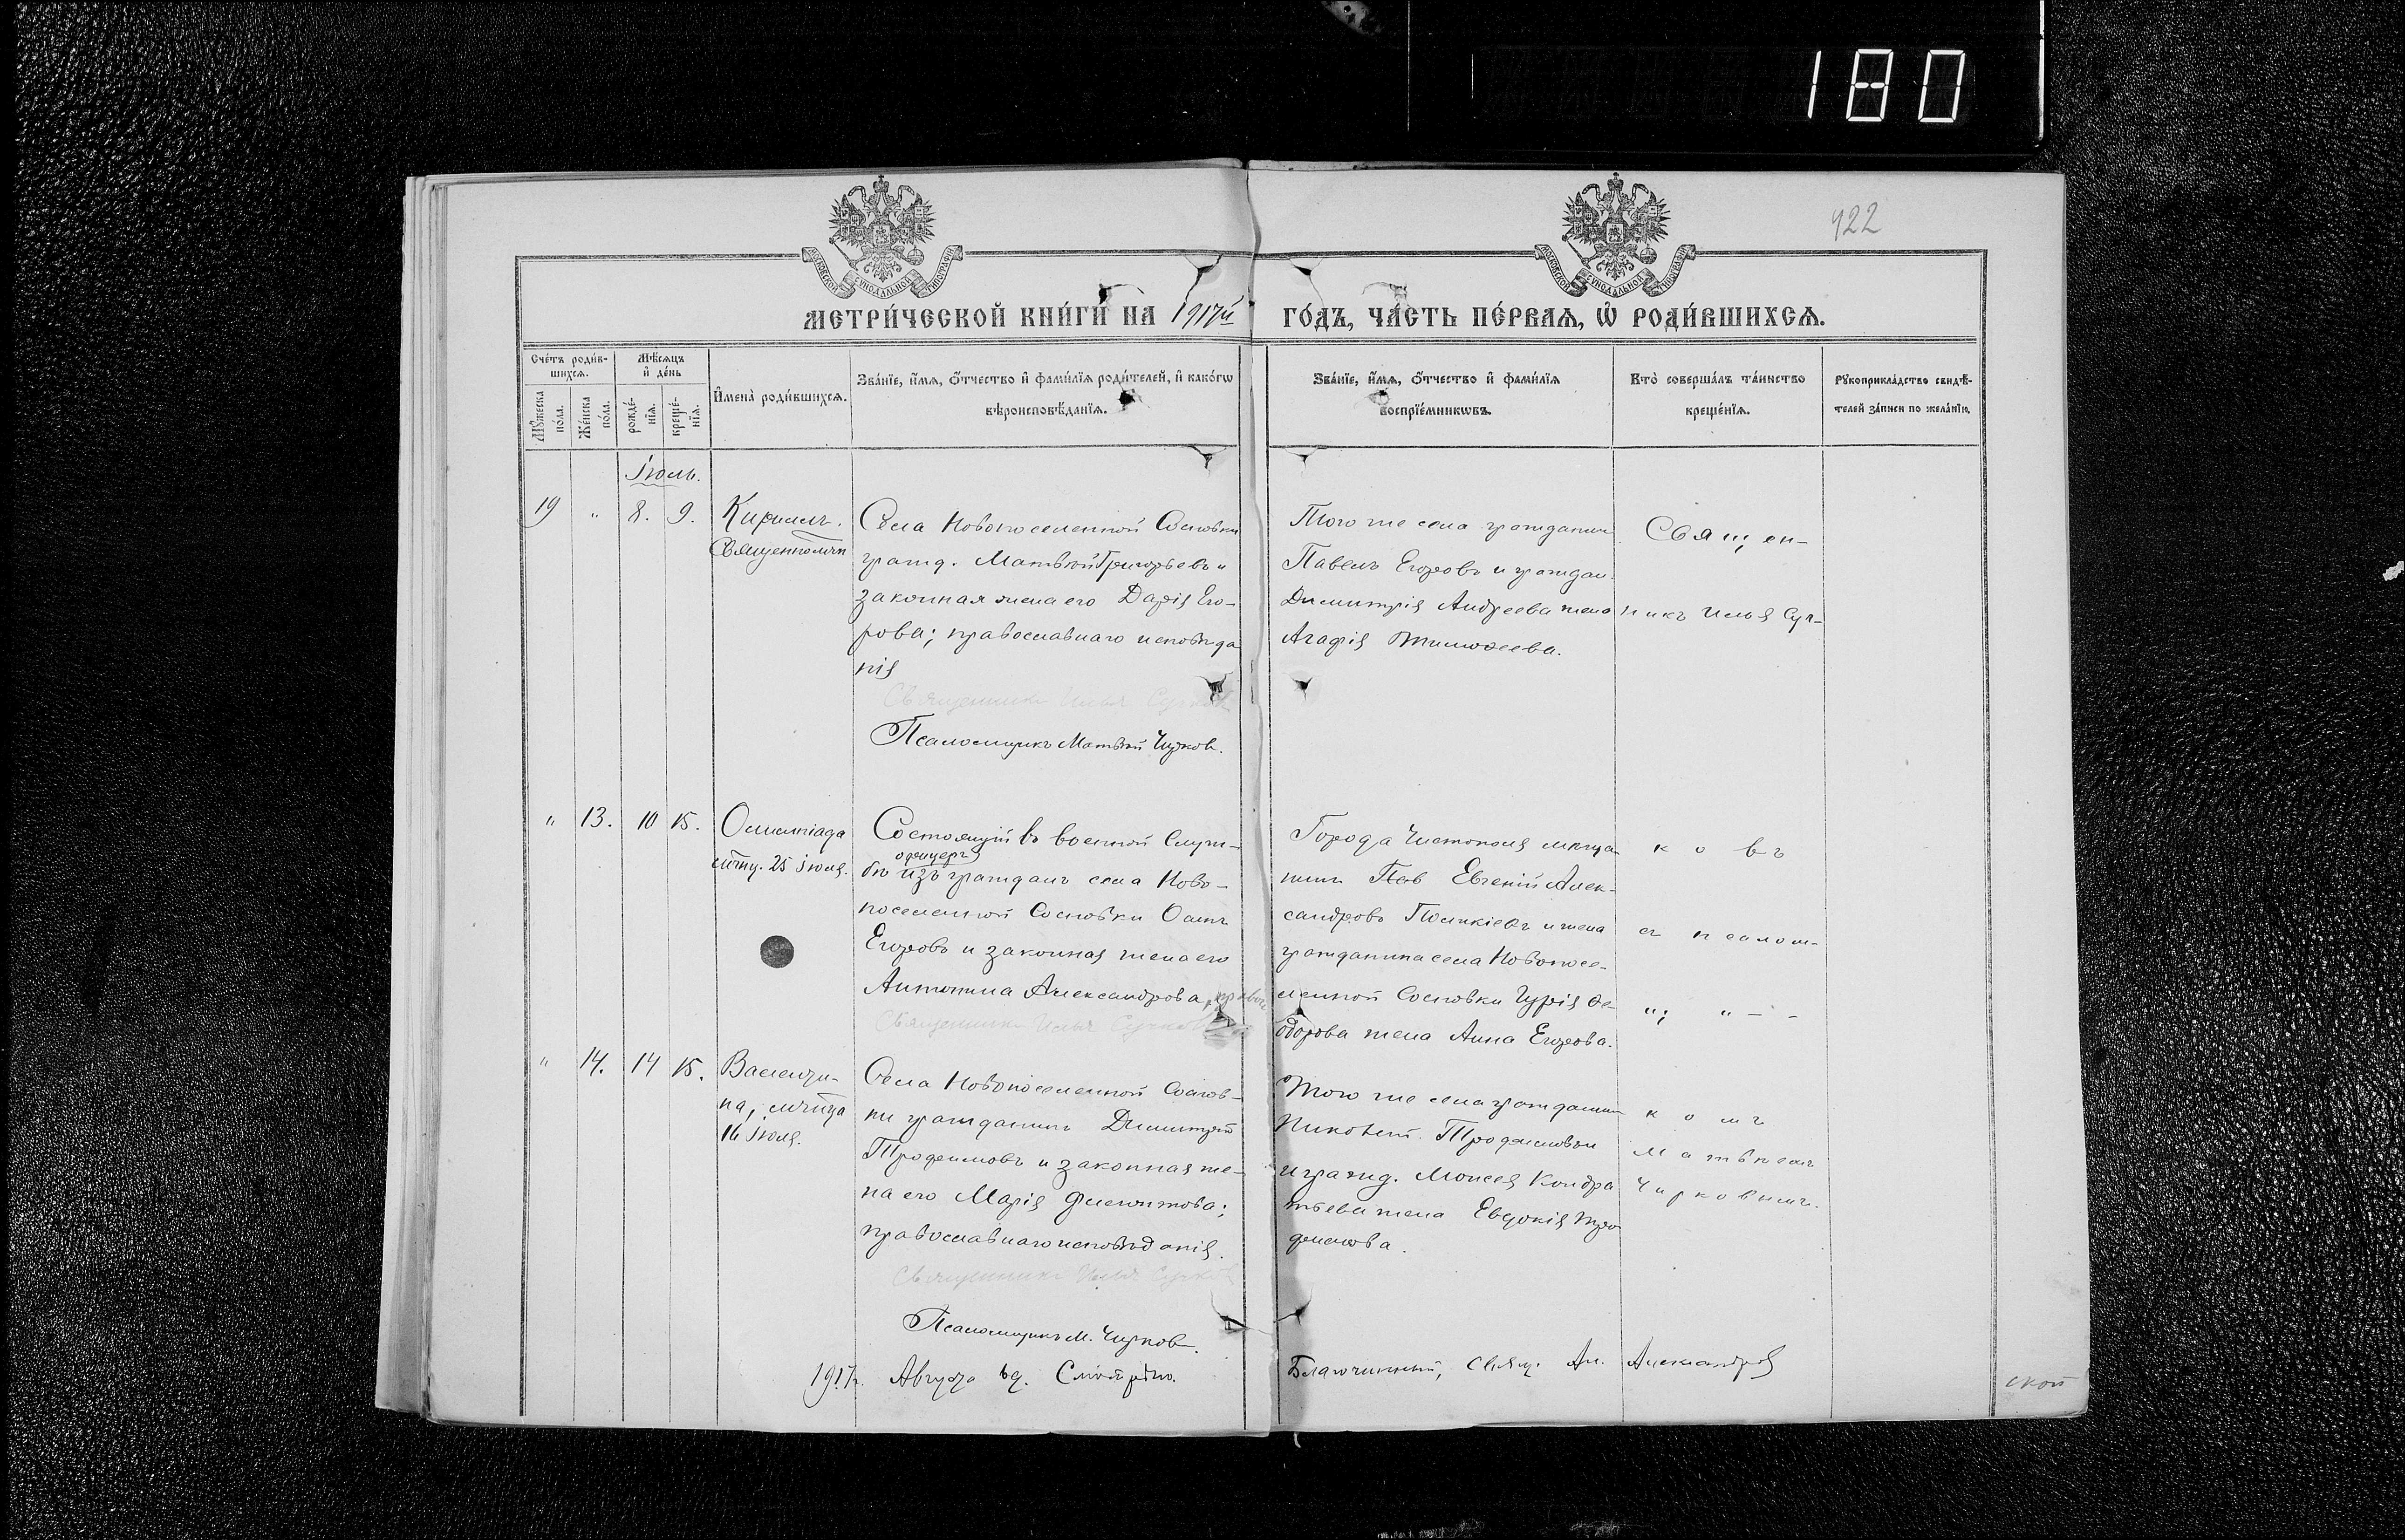 180
922
МОСКОВСКОЙ СѴНОДАЛЬНОЙ ТИПОГРАФІИ
МОСКОВСКОЙ СѴНОДАЛЬНОЙ ТИПОГРАФІИ
МЕТРИ́ЧЕСКОЙ КНИ́ГИ НА 1917й ГО́ДЪ, ЧА́СТЬ ПЕ́РВАѦ, Ѽ РОДИ́ВШИХСѦ.
Сче́тъ роди́в-
шихсѧ.
Мꙋ́жеска
по́ла.
Же́нска
по́ла.
Мѣ́сѧцъ
и҆ де́нь
рожде́-
нїѧ.
креще́-
нїѧ.
И҆мена̀ роди́вшихсѧ.
Зва́нїе, и҆́мѧ, ѻ҆́тчество и҆ фами́лїѧ роди́телей, и҆ како́гѡ
вѣроисповѣ́данїѧ.
Зва́нїе, и҆́мѧ, ѻ҆́тчество и҆ фами́лїѧ
воспрїе́мникѡвъ.
Кто̀ соверша́лъ та́инство
креще́нїѧ.
Рꙋкоприкла́дство свидѣ́-
телей за́писи по жела́нїю.
Іюль.
19 " 8. 9. Кириллъ.
Священномчн
Села Новопоселенной Сосновки
гражд. Матвѣй Григорьевъ и
законная жена его Дарія Его-
рова; православнаго исповѣда
нія
Священникъ Илья Сучков
Псаломщикъ Матвѣй Чирков.
Того же села гражданин
Павелъ Егоровъ и граждан.
Димитрія Андреева жена
Агафія Тимоѳеева.
Священ-
никъ Илья Суч-
" 13. 10 15. Олимпіада
мчц. 25 іюля.
Состоящій въ военной служ-
офицеръ
бѣ изъ гражданъ села Ново-
поселенной Сосновки
Егоровъ и законная жена его
Антонина Александрова, правосл
Священникъ Илья Сучков
Города Чистополя мѣща-
нинъ Пав Евгеній Алек-
сандровъ и жена
гражданина села Новопосе-
ленной Сосновки Гурія Ѳе-
одорова жена Анна Егорова.
ковъ
съ псалом-
"; " - -
" 14. 14 15. Валенти-
на, мчница
16 Іюля.
Села Новопоселенной Соснов-
ки гражданинъ Димитрій
Трофимовъ и законная же-
на его Марія Филиппова;
православнаго исповѣданія.
Священникъ Илья Сучков
Псаломщикъ М. Чирков.
Того же села гражданин
Трофимовъ
и гражд. Моисея Кондра
тьева жена Евдокія Тро
фимова.
комъ
Матвѣемъ
Чирковымъ.
1917 г. Августа 9 д. Смотрѣлъ.
Благочинный, свящ. Ал. Александров
скои